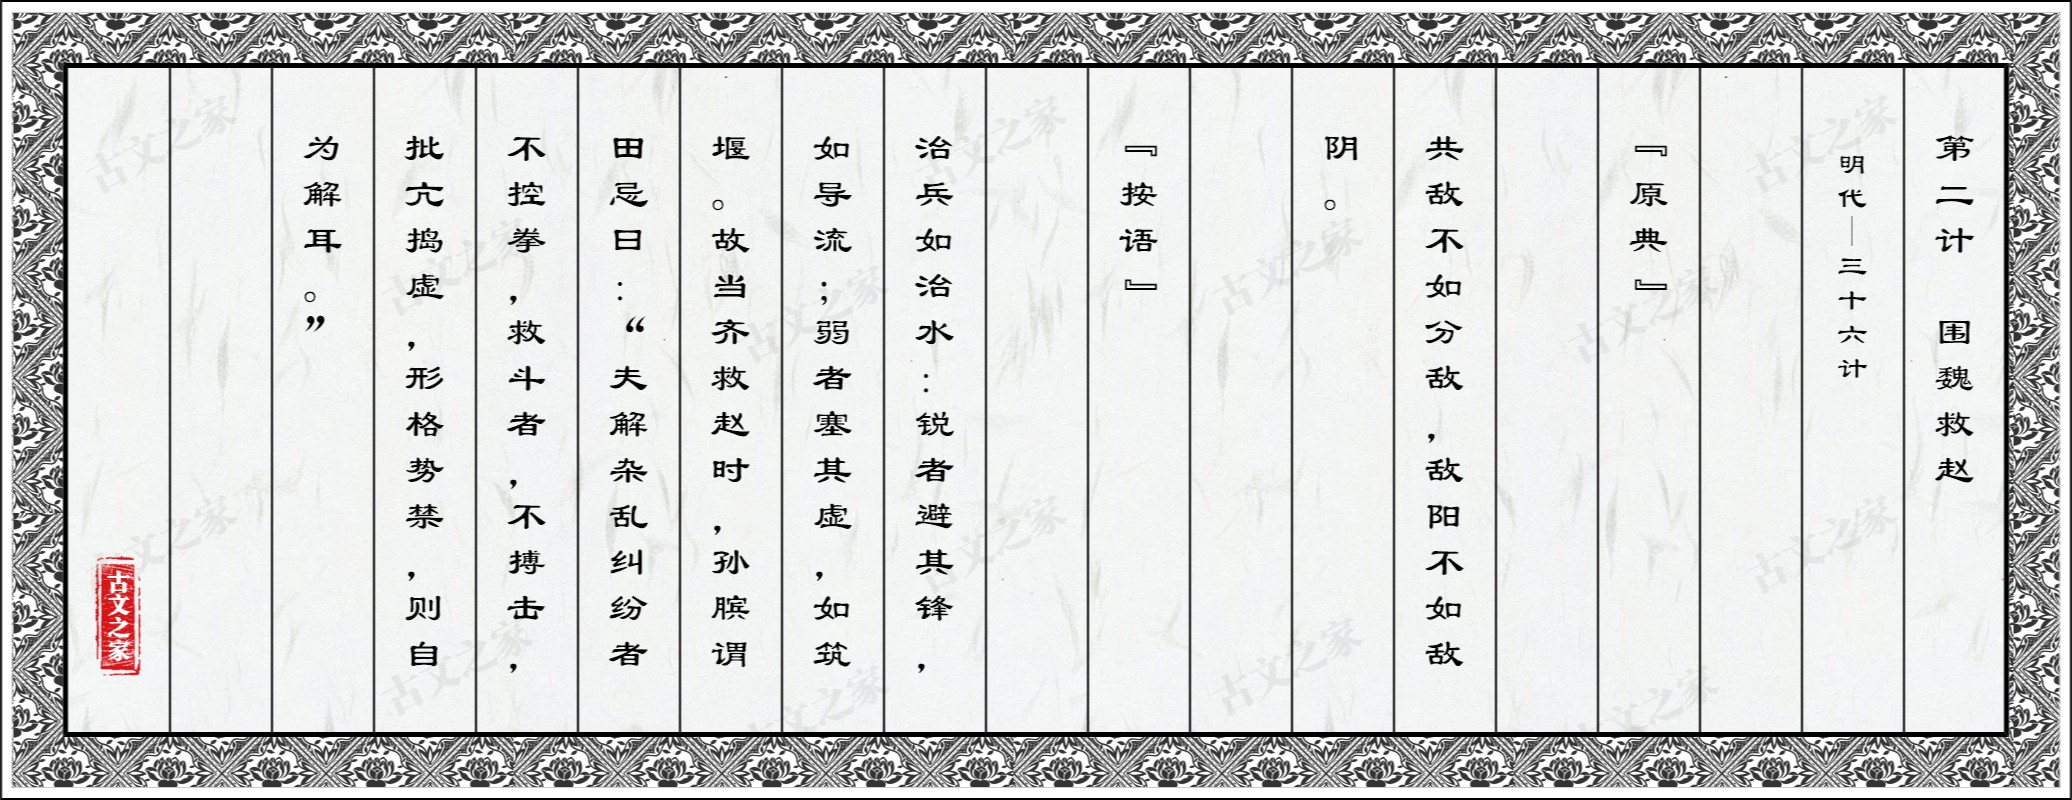 第二计 围魏救赵
明代—三十六计
『原典』
共敌不如分敌，敌阳不如敌
阴。
『按语』
治兵如治水：锐者避其锋，
如导流；弱者塞其虚，如筑
堰。故当齐救赵时，孙膑谓
田忌曰：“夫解杂乱纠纷者
不控拳，救斗者，不搏击，
批亢捣虚，形格势禁，则自
为解耳。”
古文之家